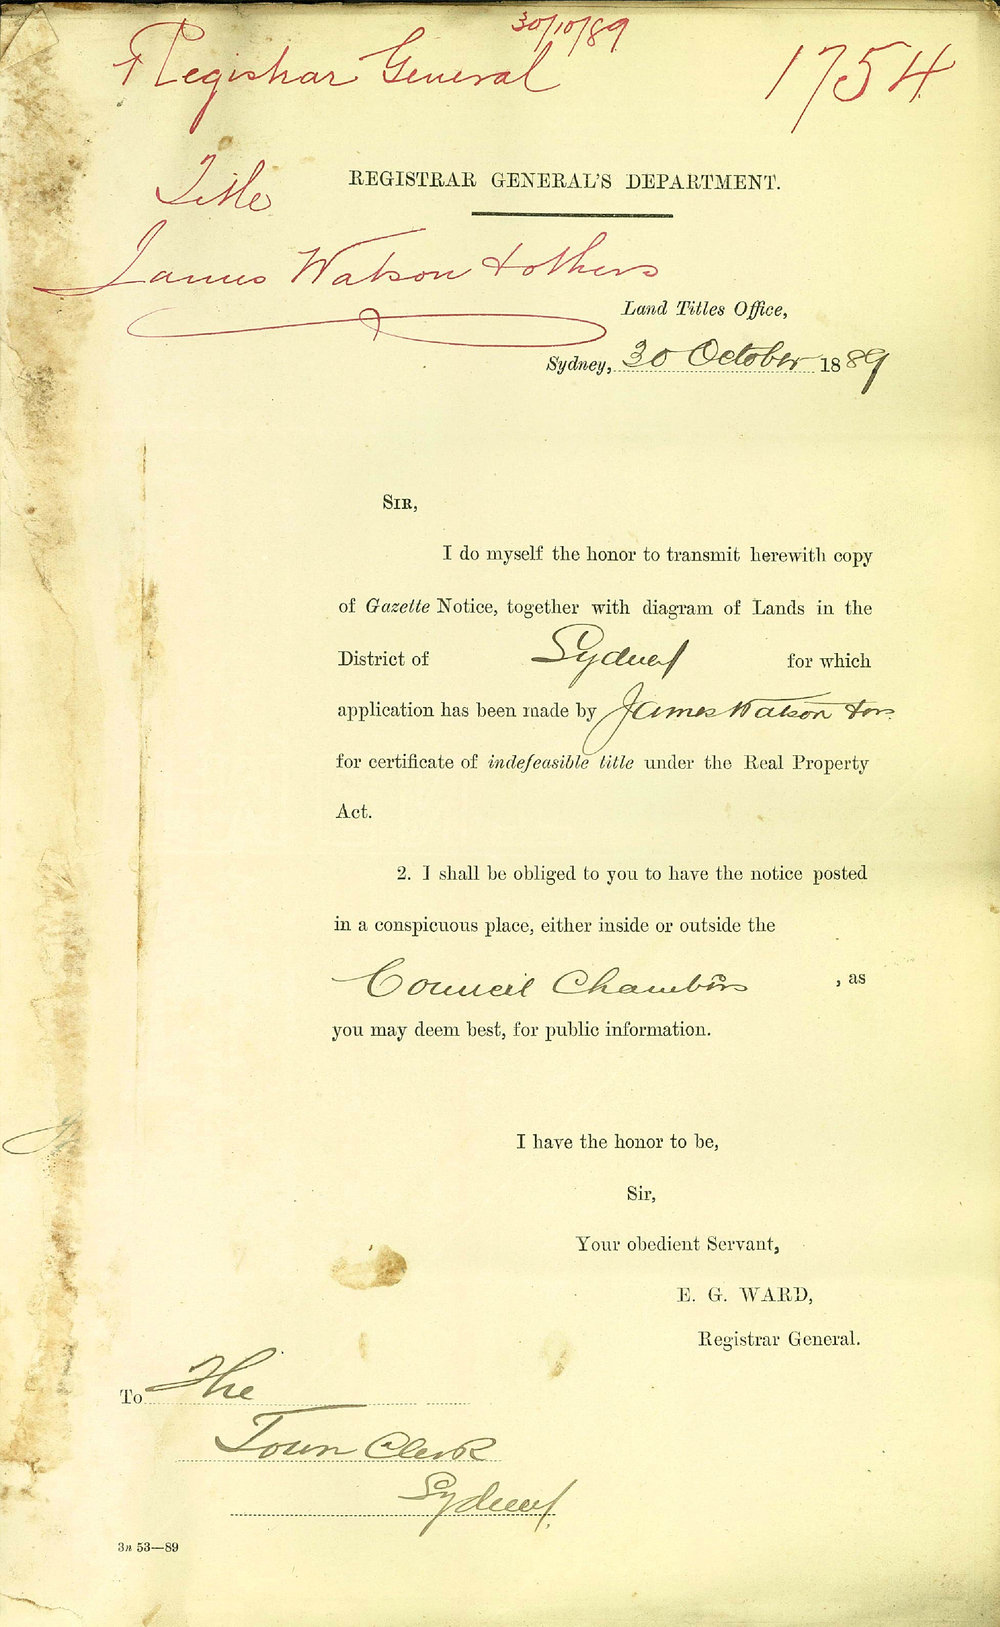 30/10/89
Registrar General
1754
Title
REGISTRAR GENERAL'S DEPARTMENT.
James Watson & others
Land Titles Office,
Sydney, 30 October 1889
SIR,
I do myself the honor to transmit herewith copy
of Gazette Notice, together with diagram of Lands in the
District of Sydney for which
application has been made by James Watson & ors
for certificate of indefeasible title under the Real Property
Act.
2. I shall be obliged to you to have the notice posted
in a conspicuous place, either inside or outside the
Council Chambers, as
you may deem best, for public information.
I have the honor to be,
Sir,
Your obedient Servant,
E. G. WARD,
Registrar General.
To The
Town Clerk
Sydney.
3n 53—89